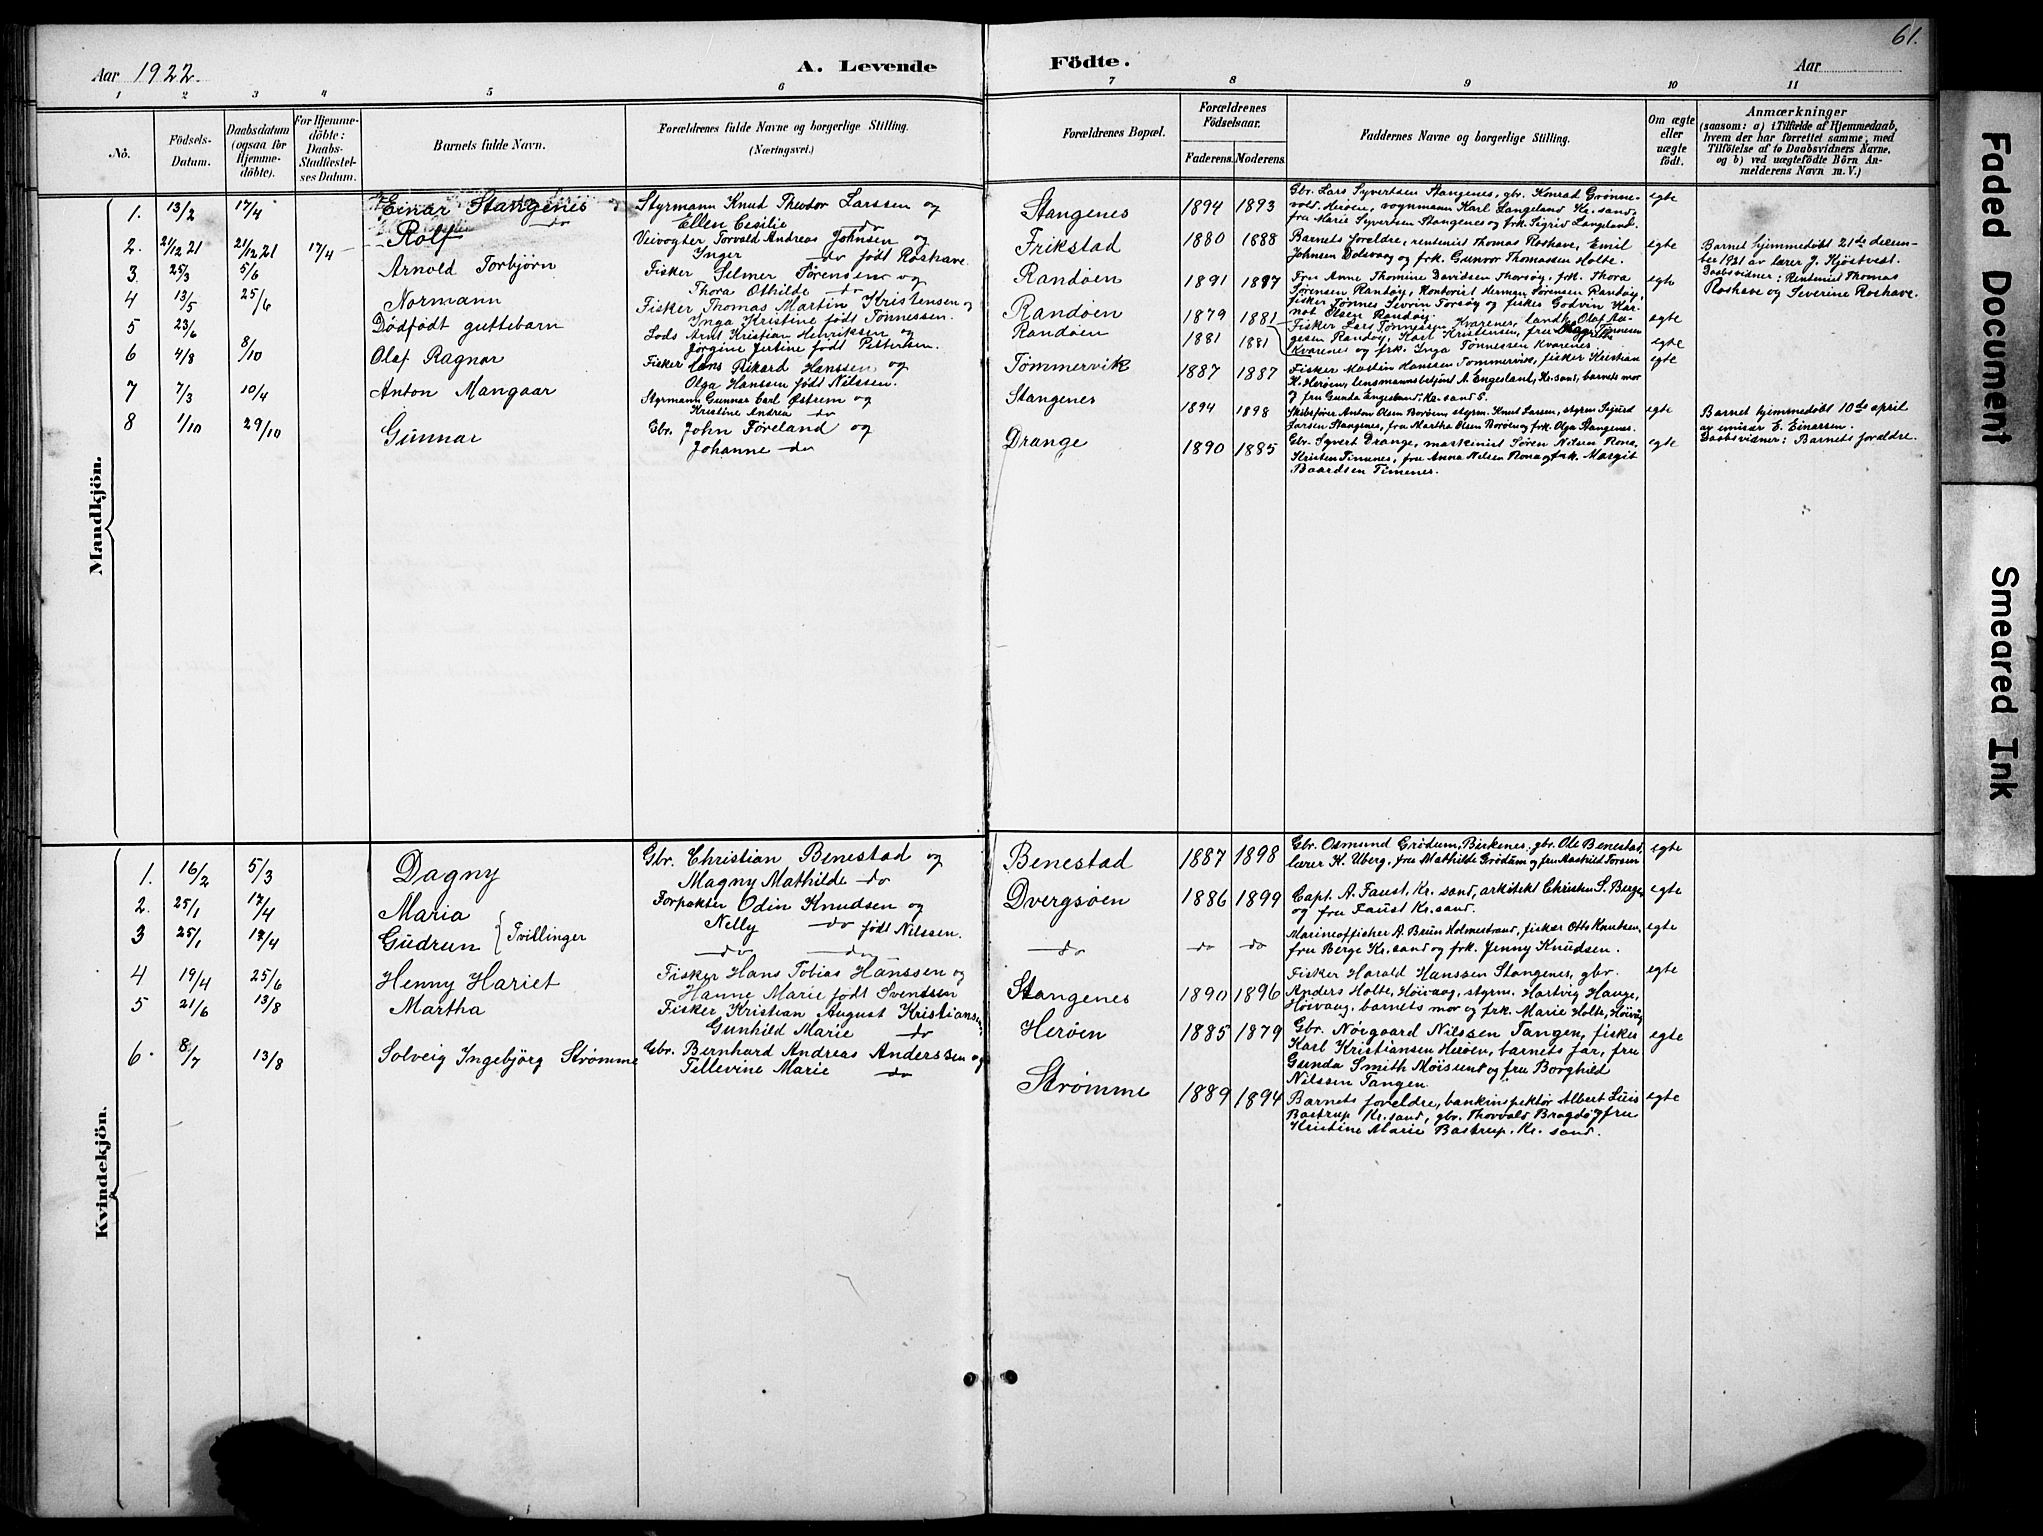 61.
Aar 1922.
A. Levende Födte.
Aar
1 2 3 4 5 6 7 8 9 10 11
Nö.
Födsels-Datum.
Daabsdatum (ogsaa for Hjemme-döbte).
For Hjemme-döbte: Daabs-Stadfæstel-ses Datum.
Barnets fulde Navn.
Forældrenes fulde Navne og borgerlige Stilling. (Næringsvei.)
Forældrenes Bopæl.
Forældrenes Födselsaar.
Faderens. Moderens.
Faddernes Navne og borgerlige Stilling.
Om ægte eller uægte födt.
Anmærkninger
(saasom: a) i Tilfælde af Hjemmedaab,
hvem der har forrettet samme, med
Tilföielse af to Daabsvidners Navne,
og b) ved uægtefödte Börn An-
melderens Navn m. V.)
Mandkjön.
1. 13/2 17/4 Einar Stangenes
Styrmann Knud Theodor Larssen og
Ellen Cesilie do
Stangenes 1894 1893
Gbr. Lars Syvertsen Stangenes, gbr. Konrad Grønne-
vold. Herøen, vognmann Karl Langeland Kr.sand,
fru Marie Syvertsen Stangenes og frk. Sigrid Langeland.
egte
2. 21/12 21 21/12 21 17/4 Rolf
Veivogter Torvald Andreas Johnsen og
Inger do født Roshave
Frikstad 1880 1888
Barnets foreldre, rentenist Thomas Roshave, Emil
Johnsen Dolsvaag og frk. Gunvor Thomassen Holte.
egte
Barnet hjemmedøbt 21de decem-
ber 1921 av lærer J. Kjøstvedt.
Daabsvidner: Rentenist Thomas
Roshave og Severine Roshave.
3 25/3 5/6 Arnold Torbjørn
Fisker Selmer Sørensen og
Thora Othilde do
Randøen 1891 1887
Fru Anne Thomine Davidsen Thorsøy, frk. Thora
Sørensen Randøy, Kontorist Herman Sørensen Randøy,
fisker Tønnes Sevrin Torsøy og fisker Godvin Har-
not Olsen Randøy.
egte
4 13/5 25/6 Normann
Fisker Thomas Martin Kristensen og
Inga Kristine født Tønnessen.
Randøen 1879 1881
Fisker Lars Tønnessen Kvarenes, landh. Olaf Aa-
gesen Randøy, Karl Kristensen, fru Tønnesen
Kvarenes og frk. Inga Tønnessen Kvarenes
egte
5 23/6 Dødfødt guttebarn
Lods Arnt Kristian Henriksen og
Jørgine Jertine født Pettersen.
Randøen 1881 1881 egte
6 4/8 8/10 Olaf Ragnar
Fisker Hans Rikard Hanssen og
Olga Hanssen født Nilssen.
Tømmervik 1887 1887
Fisker Martin Hanssen Tømmervik, fisker Kristian
K. Herøen, lensmannsbetjent A. Engesland, Kr.sand, barnets mor
og fru Gunda Engesland, Kr.sand S.
egte
7 7/3 10/4 Anton Mangaar
Styrmann Gunnar Carl Østrem og
Kristine Andrea do
Stangenes 1894 1898
Skibsfører Anton Olsen Borøen, styrm. Knut Larsen, styrm. Sigurd
Larsen Stangenes, fru Martha Olsen Borøen og frk. Olga Stangenes.
egte
Barnet hjemmedøbt 10de april
av emisær E. Einarssen.
Daabsvidner: Barnets foreldre.
8 1/10 29/10 Gunnar
Gbr. John Føreland og
Johanne do
Drange 1890 1885
Gbr. Syvert Drange, maskinist Søren Nilsen Rona,
Kristen Timenes, fru Anna Nilsen Rona og frk. Margit
Baardsen Timenes.
egte
Kvindekjön.
1. 16/2 5/3 Dagny
Gbr. Christian Benestad og
Magny Mathilde do
Benestad 1887 1898
Gbr. Osmund Grødum, Birkenes, gbr. Ole Benestad,
lærer K. Uberg, fru Mathilde Grødum og fru Torsen
egte
2. 25/1 17/4 Maria
3 25/1 17/4 Gudrun
Tvillinger
Forpakter Odin Knudsen og
Nelly do født Nilssen.
do do
Dvergsøen 1886 1899
Capt. A. Faust, Kr.sand, arkitekt Christen S. Berge
og fru Faust Kr.sand.
egte
do do do
Marineofficher A. Brun Holmestrand, fisker Otto Knutsen,
fru Berge Kr.sand og frk. Jenny Knudsen.
egte
4 19/4 25/6 Henny Hariet
Fisker Hans Tobias Hanssen og
Hanne Marie født Svendsen
Stangenes 1890 1896
Fisker Harald Hanssen Stangenes, gbr.
Anders Holte, Høivaag, styrm. Hartvig Hauge,
Høivaag, barnets mor og frk. Marie Holte, Høivåg
egte
5 21/6 13/8 Martha
Fisker Kristian August Kristiansen,
Gunhild Marie do
Herøen 1885 1879
Gbr. Norgaard Nilssen Tangen, fisker
Karl Kristiansen Herøen, barnets far, fru
Gunda Smith Møisund og fru Borghild
Nilssen Tangen
egte
6. 8/7 13/8 Solveig Ingebjørg Strømme
Gbr. Bernhard Andreas Anderssen og
Tellevine Marie do
Strømme 1889 1894
Barnets foreldre, bankinspektør Albert Luis
Bastrup Kr.sand, gbr. Thorvald Bragdøy fru
Kristine Marie Bastrup. Kr.sand.
egte
Faded Document
Smeared Ink